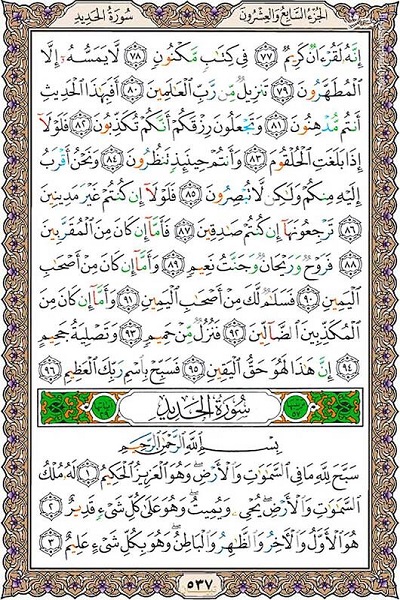 الجزء السابع والعشرون
سورة الحديد
إِنَّهُ لَقُرْءَانٌ كَرِيمٌ ٧٧ فِي كِتَٰبٍ مَّكْنُونٍ ٧٨ لَّا يَمَسُّهُۥٓ إِلَّا
ٱلْمُطَهَّرُونَ ٧٩ تَنزِيلٌ مِّن رَّبِّ ٱلْعَٰلَمِينَ ٨٠ أَفَبِهَٰذَا ٱلْحَدِيثِ
أَنتُم مُّدْهِنُونَ ٨١ وَتَجْعَلُونَ رِزْقَكُمْ أَنَّكُمْ تُكَذِّبُونَ ٨٢ فَلَوْلَآ
إِذَا بَلَغَتِ ٱلْحُلْقُومَ ٨٣ وَأَنتُمْ حِينَئِذٍ تَنظُرُونَ ٨٤ وَنَحْنُ أَقْرَبُ
إِلَيْهِ مِنكُمْ وَلَٰكِن لَّا تُبْصِرُونَ ٨٥ فَلَوْلَآ إِن كُنتُمْ غَيْرَ مَدِينِينَ
٨٦ تَرْجِعُونَهَآ إِن كُنتُمْ صَٰدِقِينَ ٨٧ فَأَمَّآ إِن كَانَ مِنَ ٱلْمُقَرَّبِينَ
٨٨ فَرَوْحٌ وَرَيْحَانٌ وَجَنَّتُ نَعِيمٍ ٨٩ وَأَمَّآ إِن كَانَ مِنْ أَصْحَٰبِ
ٱلْيَمِينِ ٩٠ فَسَلَٰمٌ لَّكَ مِنْ أَصْحَٰبِ ٱلْيَمِينِ ٩١ وَأَمَّآ إِن كَانَ مِنَ
ٱلْمُكَذِّبِينَ ٱلضَّآلِّينَ ٩٢ فَنُزُلٌ مِّنْ حَمِيمٍ ٩٣ وَتَصْلِيَةُ جَحِيمٍ
٩٤ إِنَّ هَٰذَا لَهُوَ حَقُّ ٱلْيَقِينِ ٩٥ فَسَبِّحْ بِٱسْمِ رَبِّكَ ٱلْعَظِيمِ ٩٦
سورة الحديد
بِسْمِ ٱللَّهِ ٱلرَّحْمَٰنِ ٱلرَّحِيمِ
سَبَّحَ لِلَّهِ مَا فِي ٱلسَّمَٰوَٰتِ وَٱلْأَرْضِ وَهُوَ ٱلْعَزِيزُ ٱلْحَكِيمُ ١ لَهُۥ مُلْكُ
ٱلسَّمَٰوَٰتِ وَٱلْأَرْضِ يُحْيِۦ وَيُمِيتُ وَهُوَ عَلَىٰ كُلِّ شَيْءٍ قَدِيرٌ ٢
هُوَ ٱلْأَوَّلُ وَٱلْآخِرُ وَٱلظَّٰهِرُ وَٱلْبَاطِنُ وَهُوَ بِكُلِّ شَيْءٍ عَلِيمٌ ٣
٥٣٧